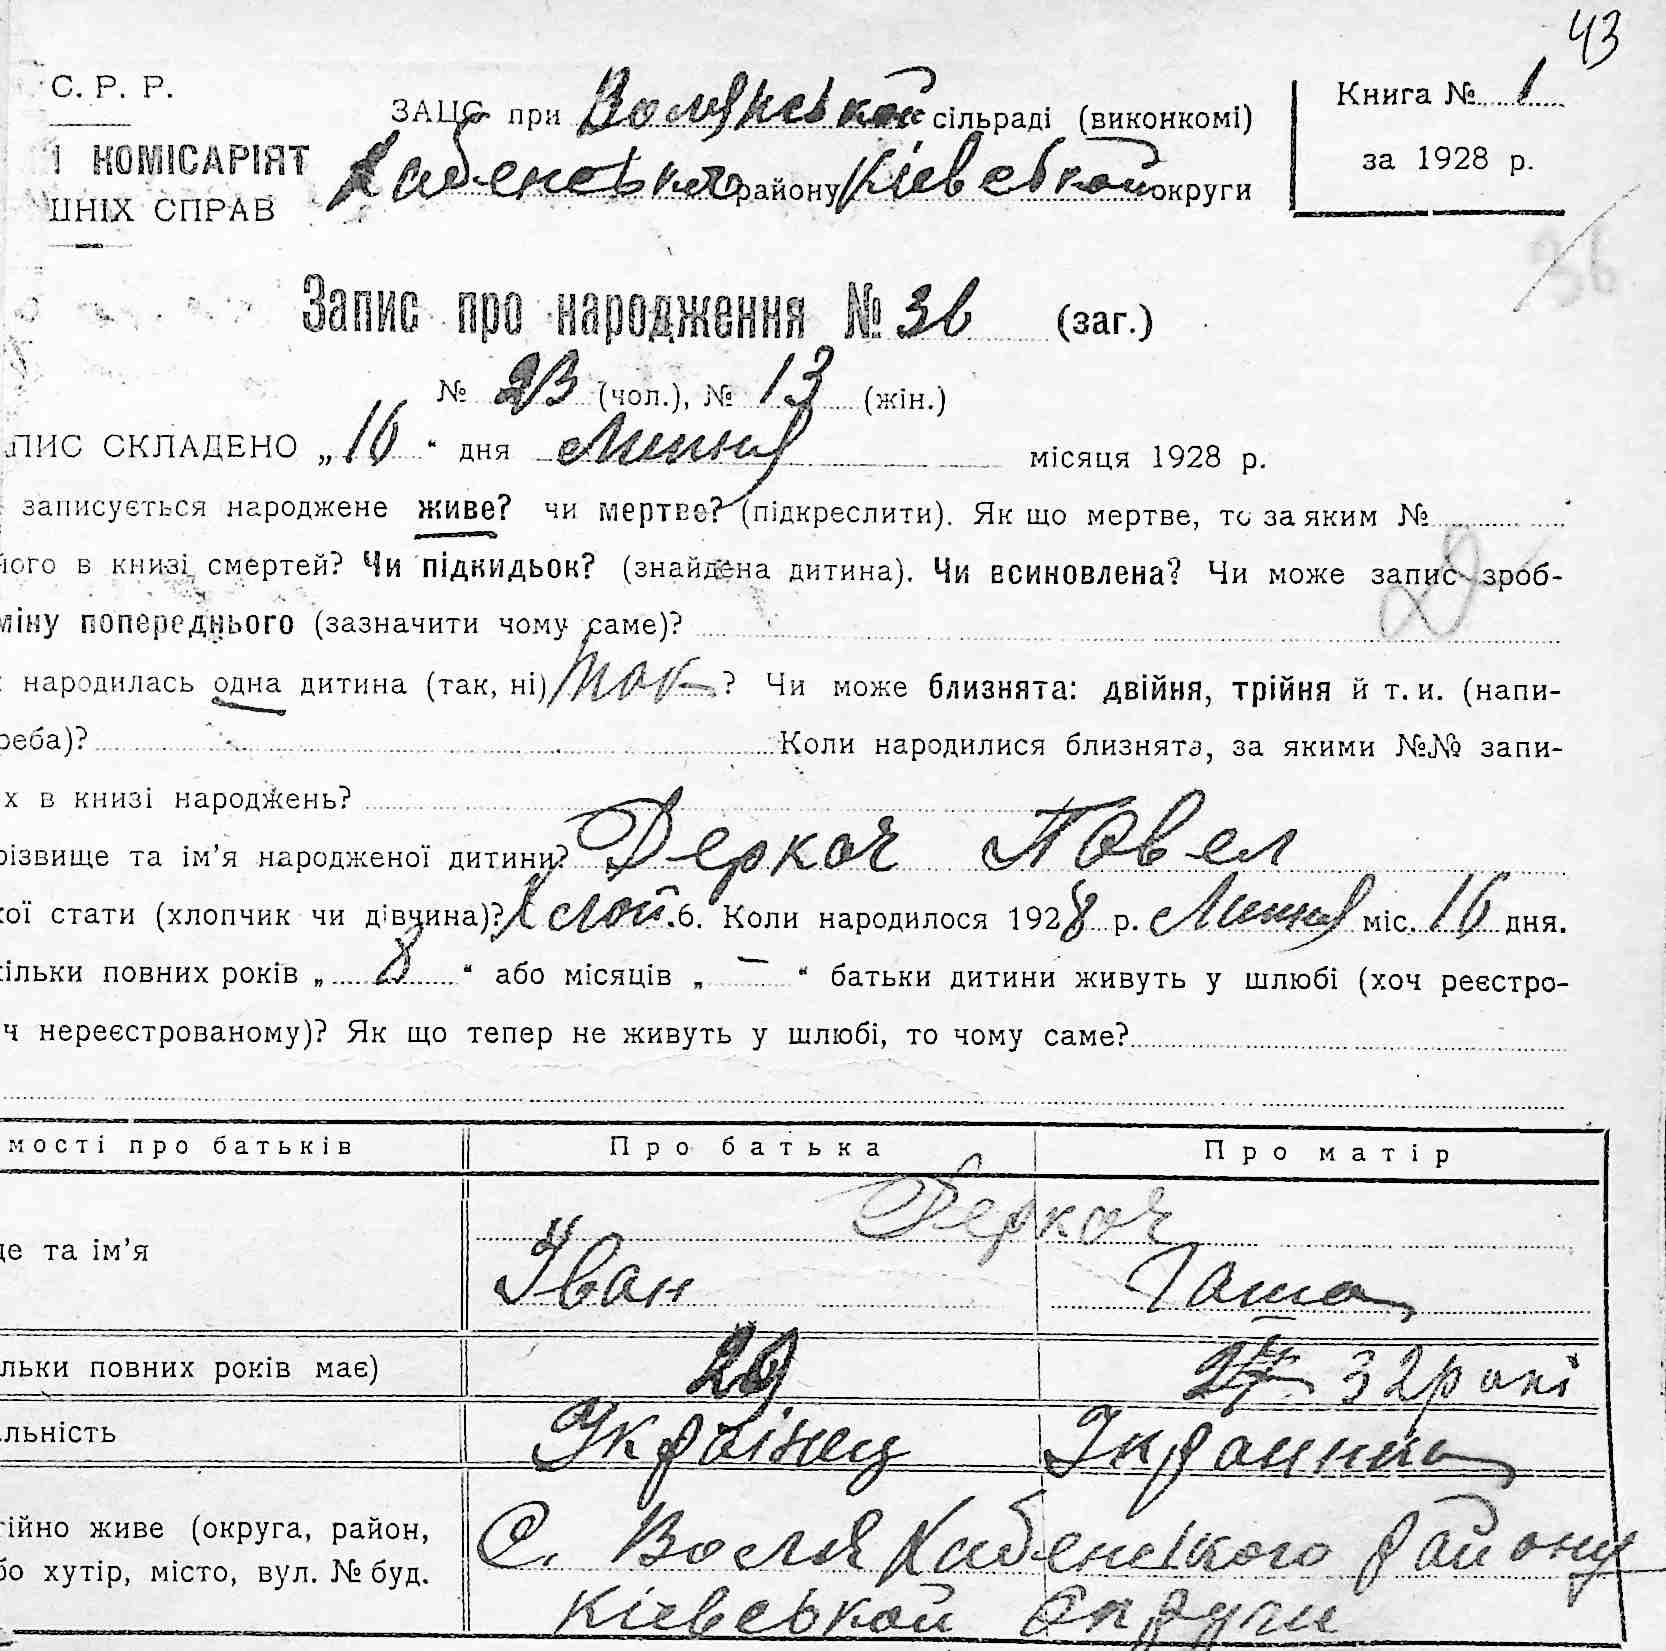 43
С. Р. Р.
ЗАЦС при Волянськой сільраді (виконкомі)
Книга № 1
І КОМІСАРІЯТ
Хабенського району Кієвськой округи
за 1928 р.
ШНІХ СПРАВ
36
Запис про народження № 36 (заг.)
№ 23 (чол.), № 13 (жін.)
ПИС СКЛАДЕНО „16“ дня Липня місяця 1928 р.
записується народжене живе? чи мертве? (підкреслити). Як що мертве, то за яким №
його в книзі смертей? Чи підкидьок? (знайдена дитина). Чи всиновлена? Чи може запис зроб-
міну попереднього (зазначити чому саме)?
народилась одна дитина (так, ні) так? Чи може близнята: двійня, трійня й т. и. (напи-
реба)? Коли народилися близнята, за якими №№ запи-
х в книзі народжень?
різвище та ім’я народженої дитини? Деркач Павел
кої стати (хлопчик чи дівчина)? Хлоп. 6. Коли народилося 1928 р. Липня міс. 16 дня.
кільки повних років „ 8 “ або місяців „ — “ батьки дитини живуть у шлюбі (хоч реєстро-
ч нереєстрованому)? Як що тепер не живуть у шлюбі, то чому саме?
мості про батьків Про батька Про матір
Деркач
це та ім’я Іван Гаша
льки повних років має) 29 27 32 рокі
льність Украінец Украинка
тійно живе (округа, район, С. Воля Хабенського району
бо хутір, місто, вул. № буд. Кієвськой Округи